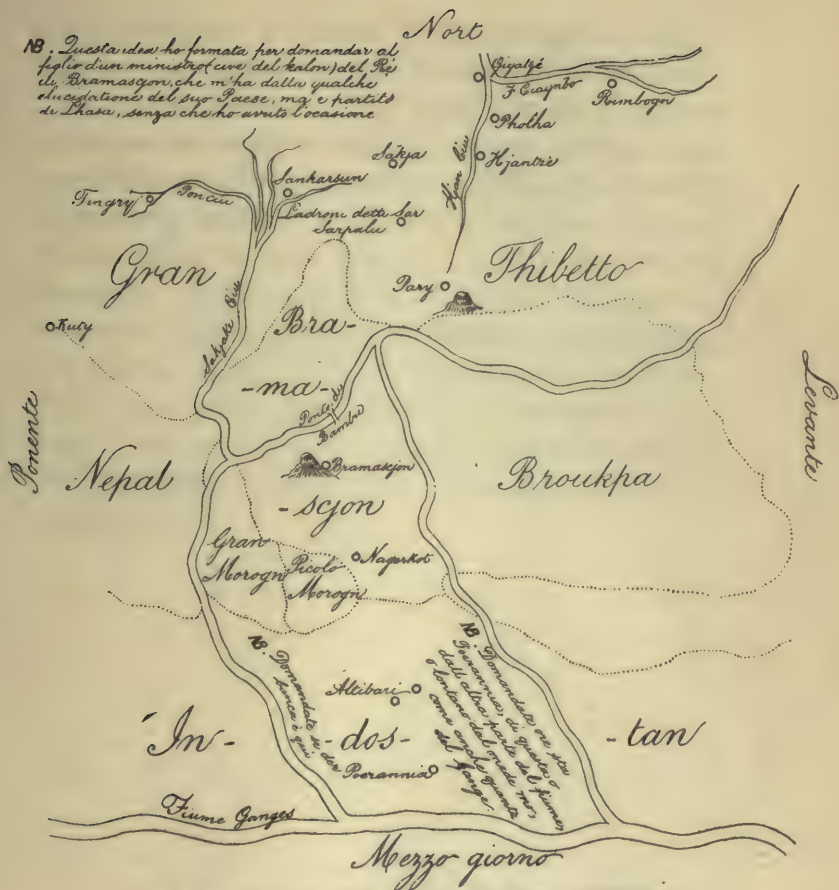 Nort
NB. Questa idea ho formata per domandar al
figlio d'un ministro (cive del kalon) del Ré
di Bramascjon, che m'ha dalla qualche
elucidatione del suo Paese, ma e partito
di Lhasa, senza che ho avuto l'ocasione
Giyatzé
F. Ciaynbo
Rimbogn
Pholha
Hjantzé
Hjan Ciu
Sakja
Sankarsun
Tingry
Ponciu
Ladroni detti Sar
Sarpalu
Gran
Thibetto
Pary
Kuty
Sakjake Ciu
Bra-
-ma-
Ponte du
Bambu
Ponente
Levante
Nepal
Bramascjon
Broukpa
-scjon
Gran
Morogn
Picolo
Morogn
Nagerkot
NB. Domandate si der
banca è qui
Altibari
NB. Domandate ove sta
Poerannia, di questa o
dall'altra parte del fiume,
o lontano dal mede mo,
come anche quanto
del Gange.
In-
-dos-
-tan
Poerannia
Fiume Ganges
Mezzo giorno